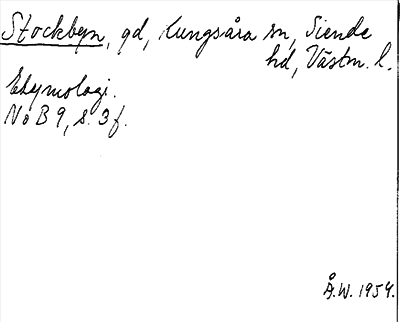 Stockbyn, gd, Kungsåra sn, Siende
hd, Västm. l.
Etymologi.
NoB 9, s. 3 f.
Å.W. 1954.